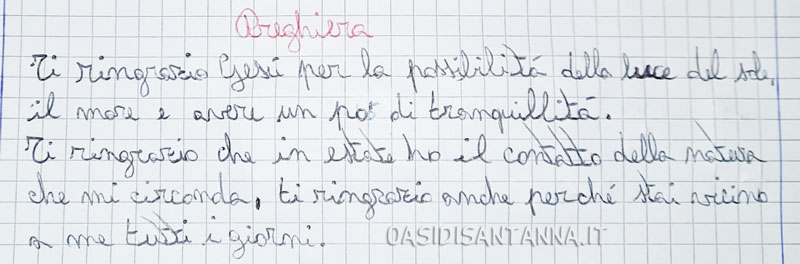 Preghiera
Ti ringrazio Gesú per la possibilitá della luce del sole,
il mare e avere un po' di tranquillitá.
Ti ringrazio che in estate ho il contatto della natura
che mi circonda, ti ringrazio anche perché stai vicino
a me tutti i giorni.
OASIDISANTANNA.IT